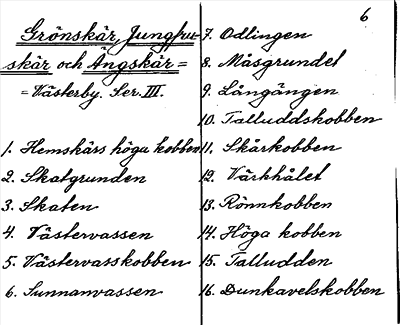 Grönskär, Jungfru-
skär och Ängskär=
=Västerby. Ser. III.
1. Hemskärs höga kobben
2. Skatgrunden
3. Skaten
4. Västervassen
5. Västervasskobben
6. Sunnanvassen
6
7. Odlingen
8. Måsgrundet
9. Långängen
10. Talluddskobben
11. Skärkobben
12. Värkhålet
13. Rönnkobben
14. Höga kobben
15. Talludden
16. Dunkavelskobben